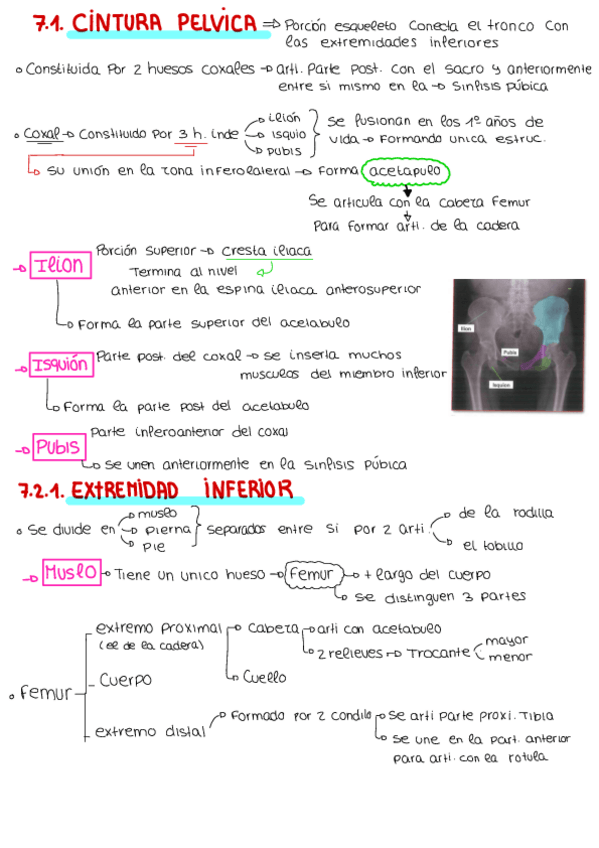 7.1. CINTURA PELVICA ⇒ Porción esqueleto conecta el tronco con
las extremidades inferiores
Constituida por 2 huesos coxales → arti. Parte Post. con el sacro y anteriormente
entre si mismo en la → Sinfisis púbica
Coxal → Constituido por 3 h. inde
ilión
isquio
pubis
se fusionan en los 1º años de
vida → Formando unica estruc.
su unión en la zona inferolateral → Forma acetapulo
se articula con la cabeza Femur
para formar arti. de la cadera
Ilion
Porción superior → cresta iliaca
Termina al nivel
anterior en la espina iliaca anterosuperior
Forma la parte superior del acetabulo
Isquión
Parte post. del coxal → se inserta muchos
musculos del miembro inferior
Forma la parte post del acetabulo
Pubis
Parte inferoanterior del coxal
se unen anteriormente en la sinfisis púbica
Ilion
Pubis
Isquion
7.2.1. EXTREMIDAD INFERIOR
Se divide en
muslo
pierna
pie
separados entre si por 2 arti.
de la rodilla
el tobillo
Muslo → Tiene un unico hueso → Femur → + largo del cuerpo
se distinguen 3 partes
Femur
extremo proximal
(el de la cadera)
Cabeza → arti con acetabulo
2 relieves → Trocante
mayor
menor
Cuello
Cuerpo
extremo distal
Formado por 2 condilo
se arti parte proxi. Tibia
se une en la part. anterior
para arti. con la rotula